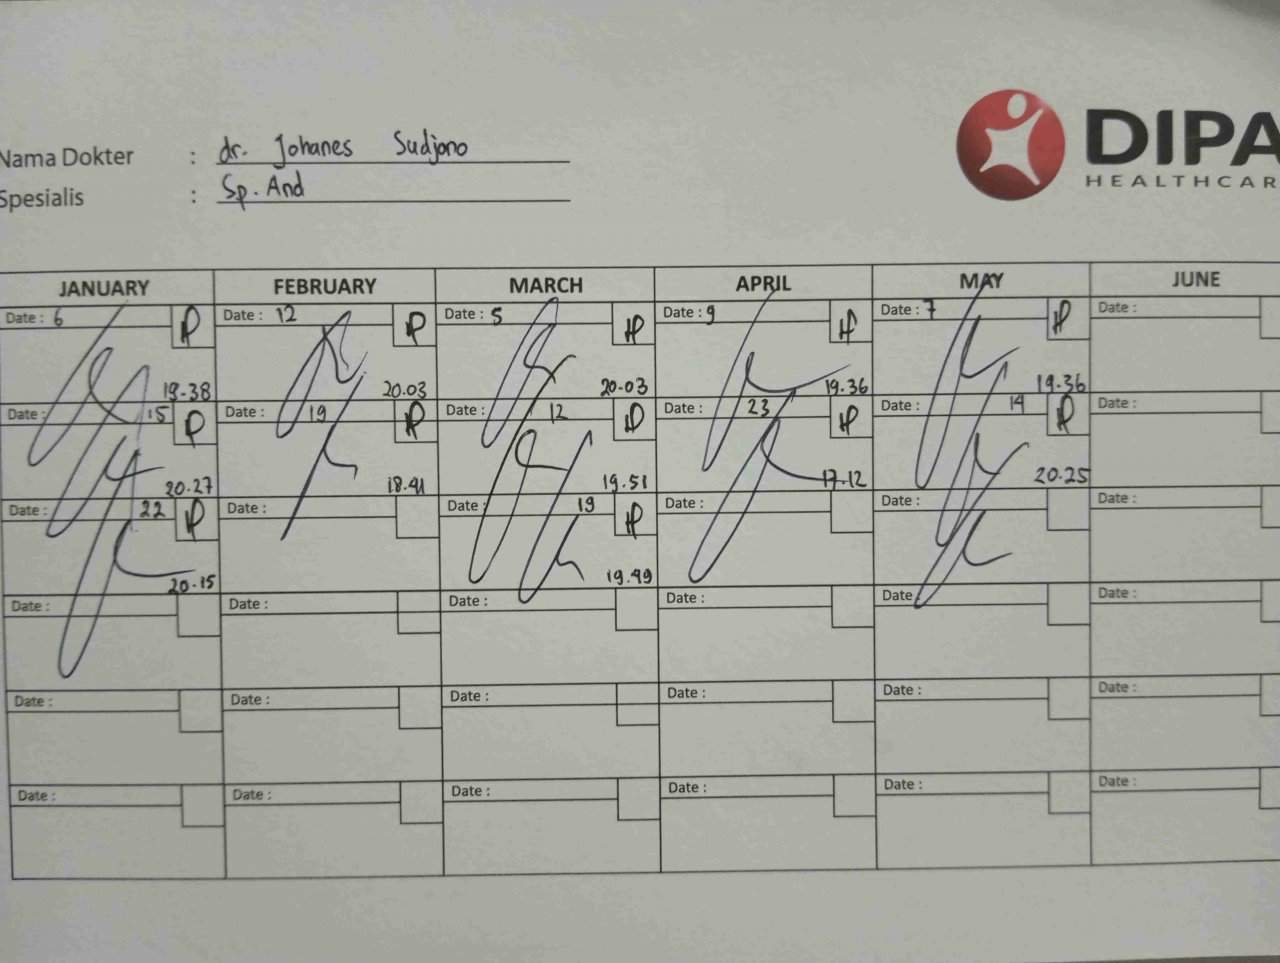 DIPA
HEALTHCAR
Nama Dokter : dr. Johanes Sudjono
Spesialis : Sp. And
JANUARY FEBRUARY MARCH APRIL MAY JUNE
Date : 6 Date : 12 Date : 5 Date : 9 Date : 7 Date :
19.38 20.03 20.03 19.36 19.36
Date : 15 Date : 19 Date : 12 Date : 23 Date : 14 Date :
20.27 18.41 19.51 17.12 20.25
Date : 22 Date : Date : 19 Date : Date : Date :
20.15 19.49
Date : Date : Date : Date : Date : Date :
Date : Date : Date : Date : Date : Date :
Date : Date : Date : Date : Date : Date :